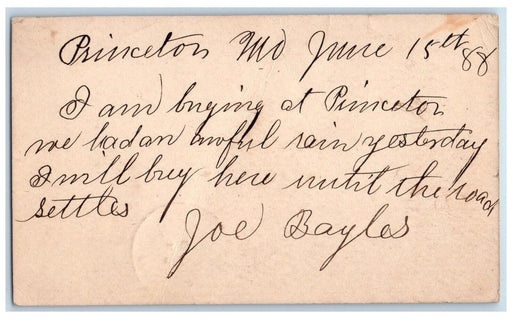 Princeton Mo June 15th 88
I am buying at Princeton
we had an awful rain yesterday
I will buy here until the road
settles
Joe Bayles